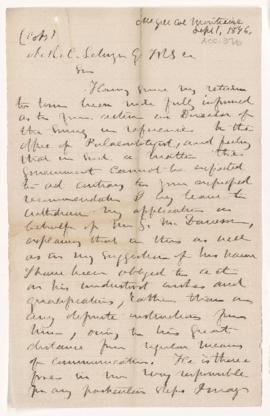 McGill Col Montreal
Sept 1, 1876.
(Copy)
ACC: 376
A. R. C. Selwyn Esq FRS &c
Sir
Having since my return
to town been made fully informed
as to your action as Director of
the Survey in reference to the
office of Palaeontologist, and feeling
that in such a matter the
Government cannot be expected
to act contrary to your
recommendation I beg leave to
withdraw my application on
behalf of Mr G. M. Dawson,
explaining that in this as well
as in my suggestion of his name
I have been obliged to act
on his understood wishes and
qualifications, rather than on
any definite instructions from
him, owing to his great
distance from regular means
of communication. He is therefore
in no way responsible
for any particular steps I may